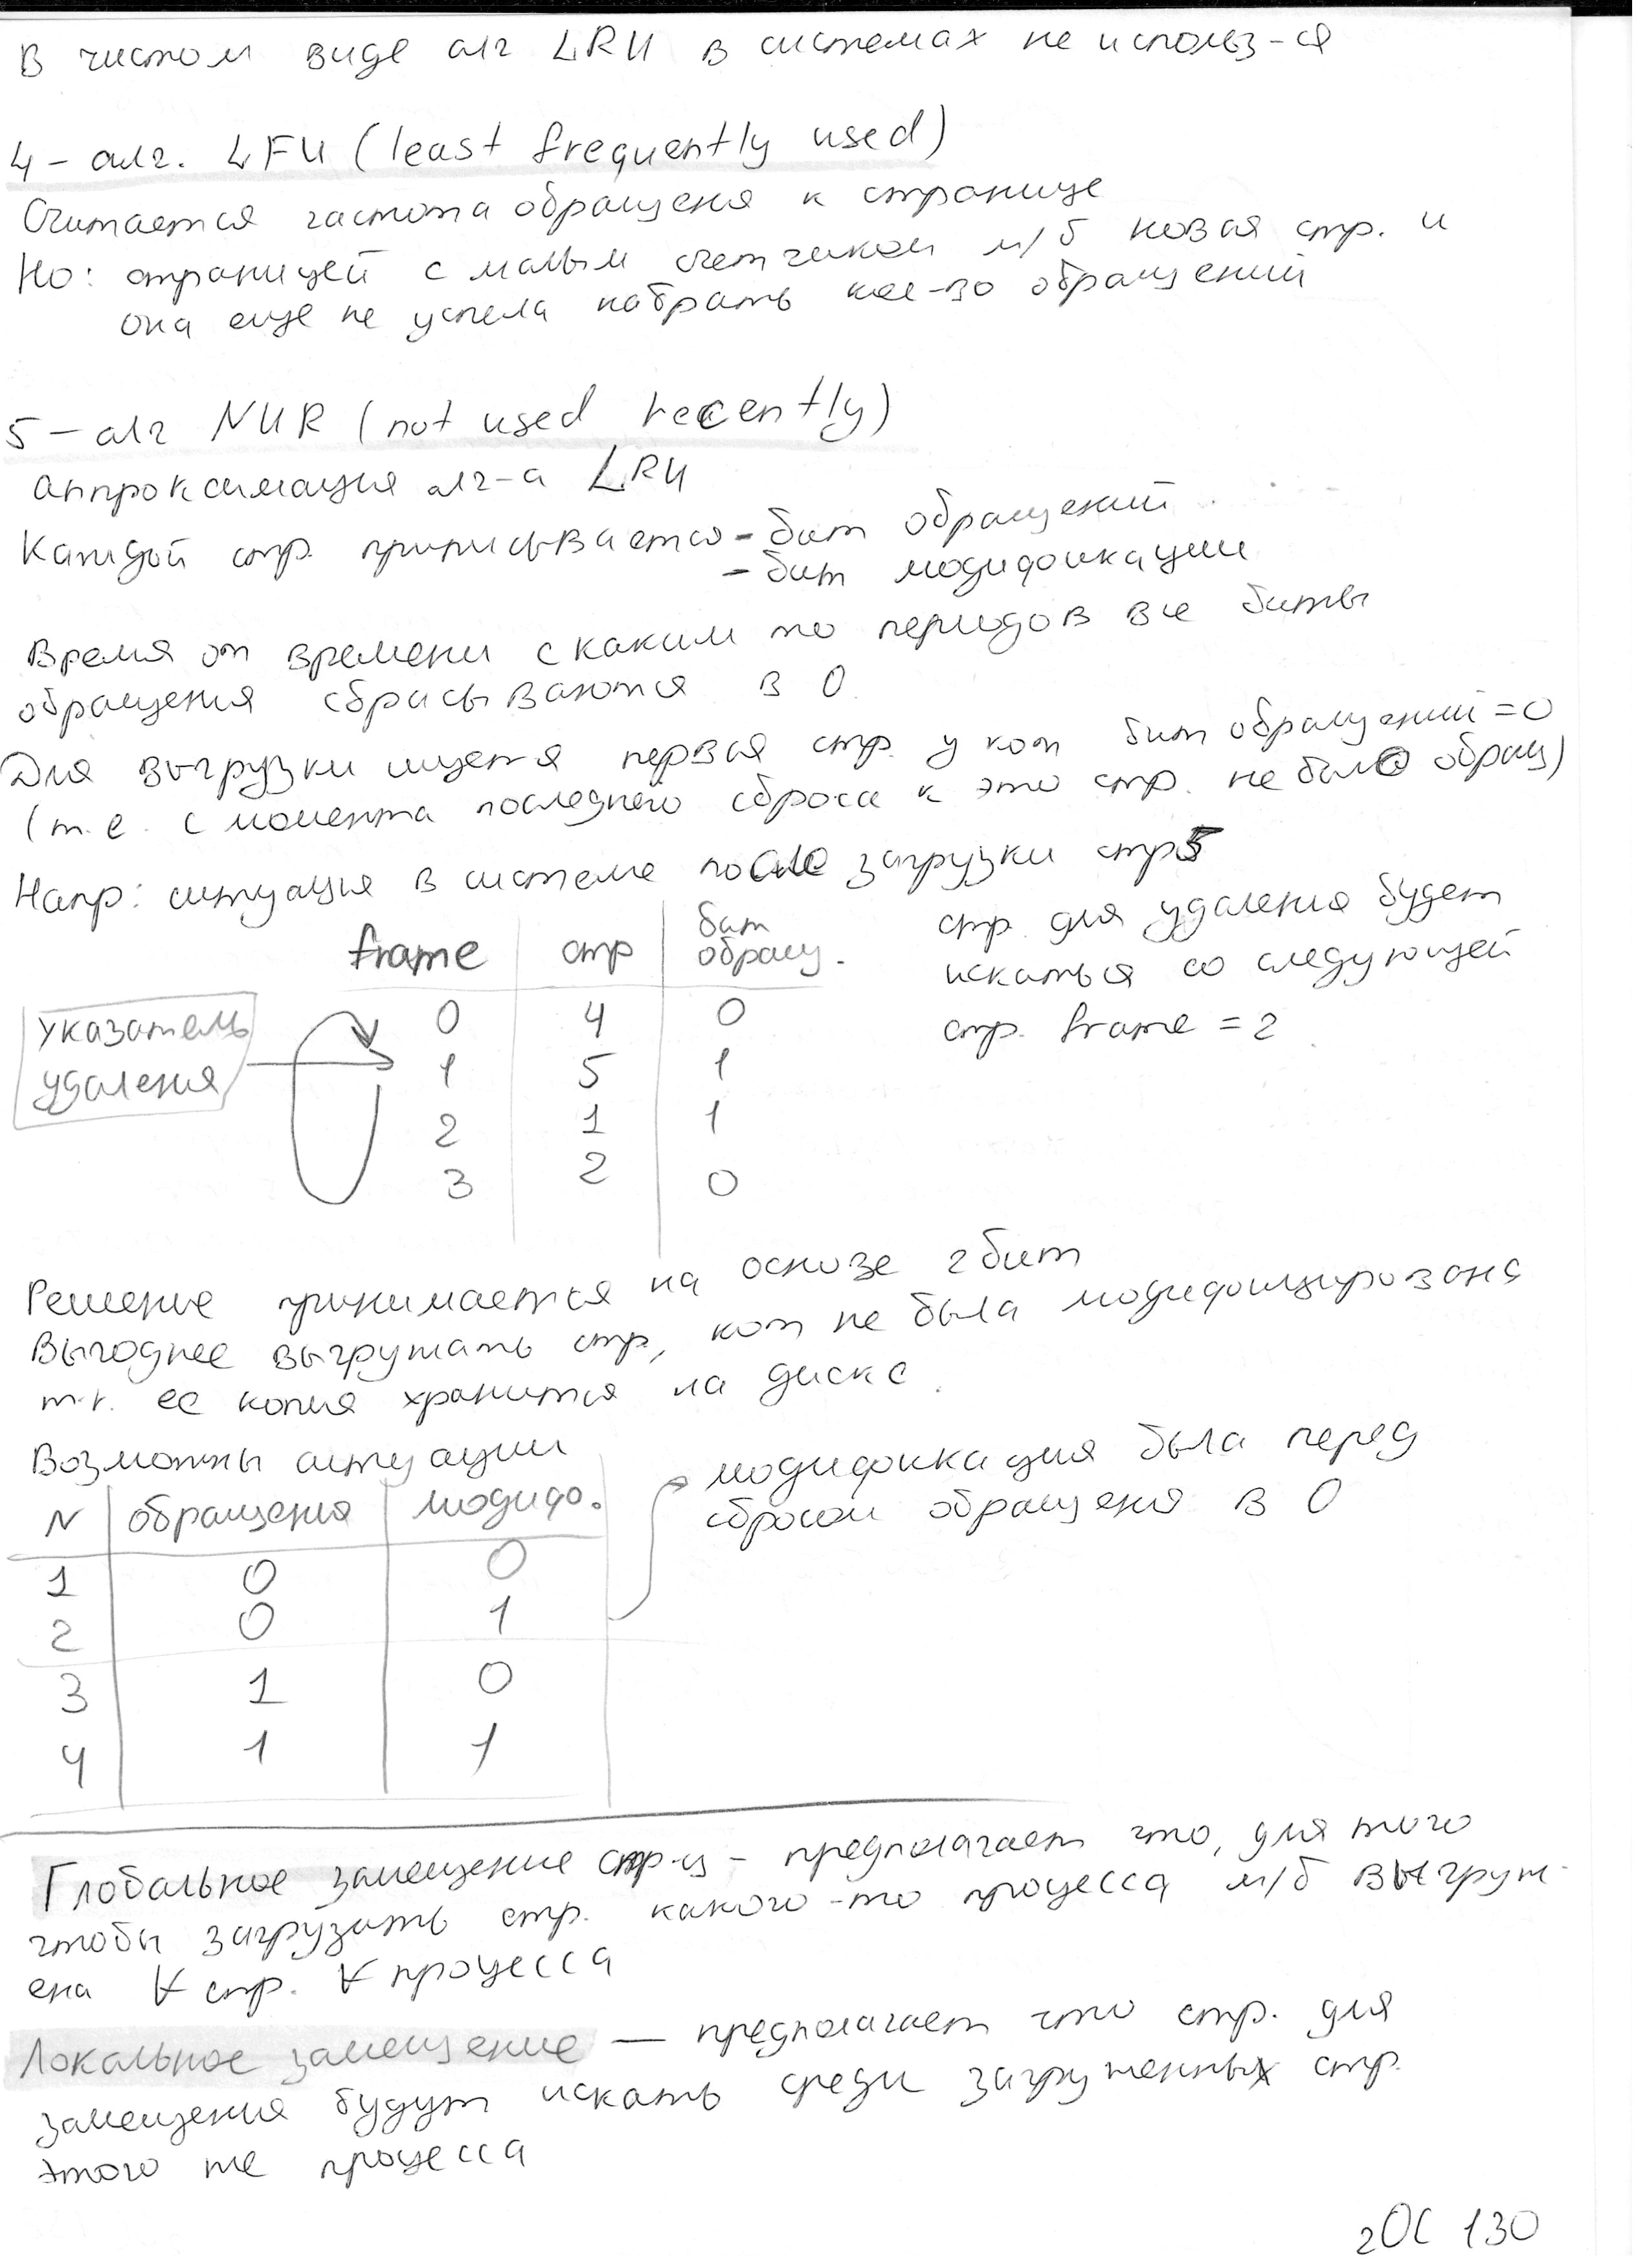 В чистом виде алг LRU в системах не использ-ся
4 - алг. LFU (least frequently used)
Считается частота обращеня к странице
Но: страницей с малым счетчиком м/б новая стр. и
она еще не успела набрать кол-во обращений
5 - алг NUR (not used recently)
Аппроксимация алг-а LRU
Каждой стр. приписывается - бит обращений
- бит модификации
Время от времени с каким то периодов все биты
обращения сбрасываются в 0
Для выгрузки ищется первая стр. у кот бит обращений = 0
(т.е. с момента последнего сброса к это стр. не было обращ)
Напр: ситуация в системе после загрузки стр 5
frame стр бит обращ.
0 4 0
1 5 1
2 1 1
3 2 0
указатель
удаления
стр. для удаления будет
искаться со следующей
стр. frame = 2
Решение принимается на основе 2 бит
Выгоднее выгружать стр, кот не была модифицирована
т.к. ее копия хранится на диске.
Возможны ситуации
N обращения модиф.
1 0 0
2 0 1
3 1 0
4 1 1
модификация была перед
сбросом обращения в 0
Глобальное замещение стр-ц - предполагает что, для того
чтобы загрузить стр. какого-то процесса м/б выгруж-
ена ∀ стр. ∀ процесса
Локальное замещение — предполагает что стр. для
замещения будут искать среди загруженных стр.
этого же процесса
2ОС 130